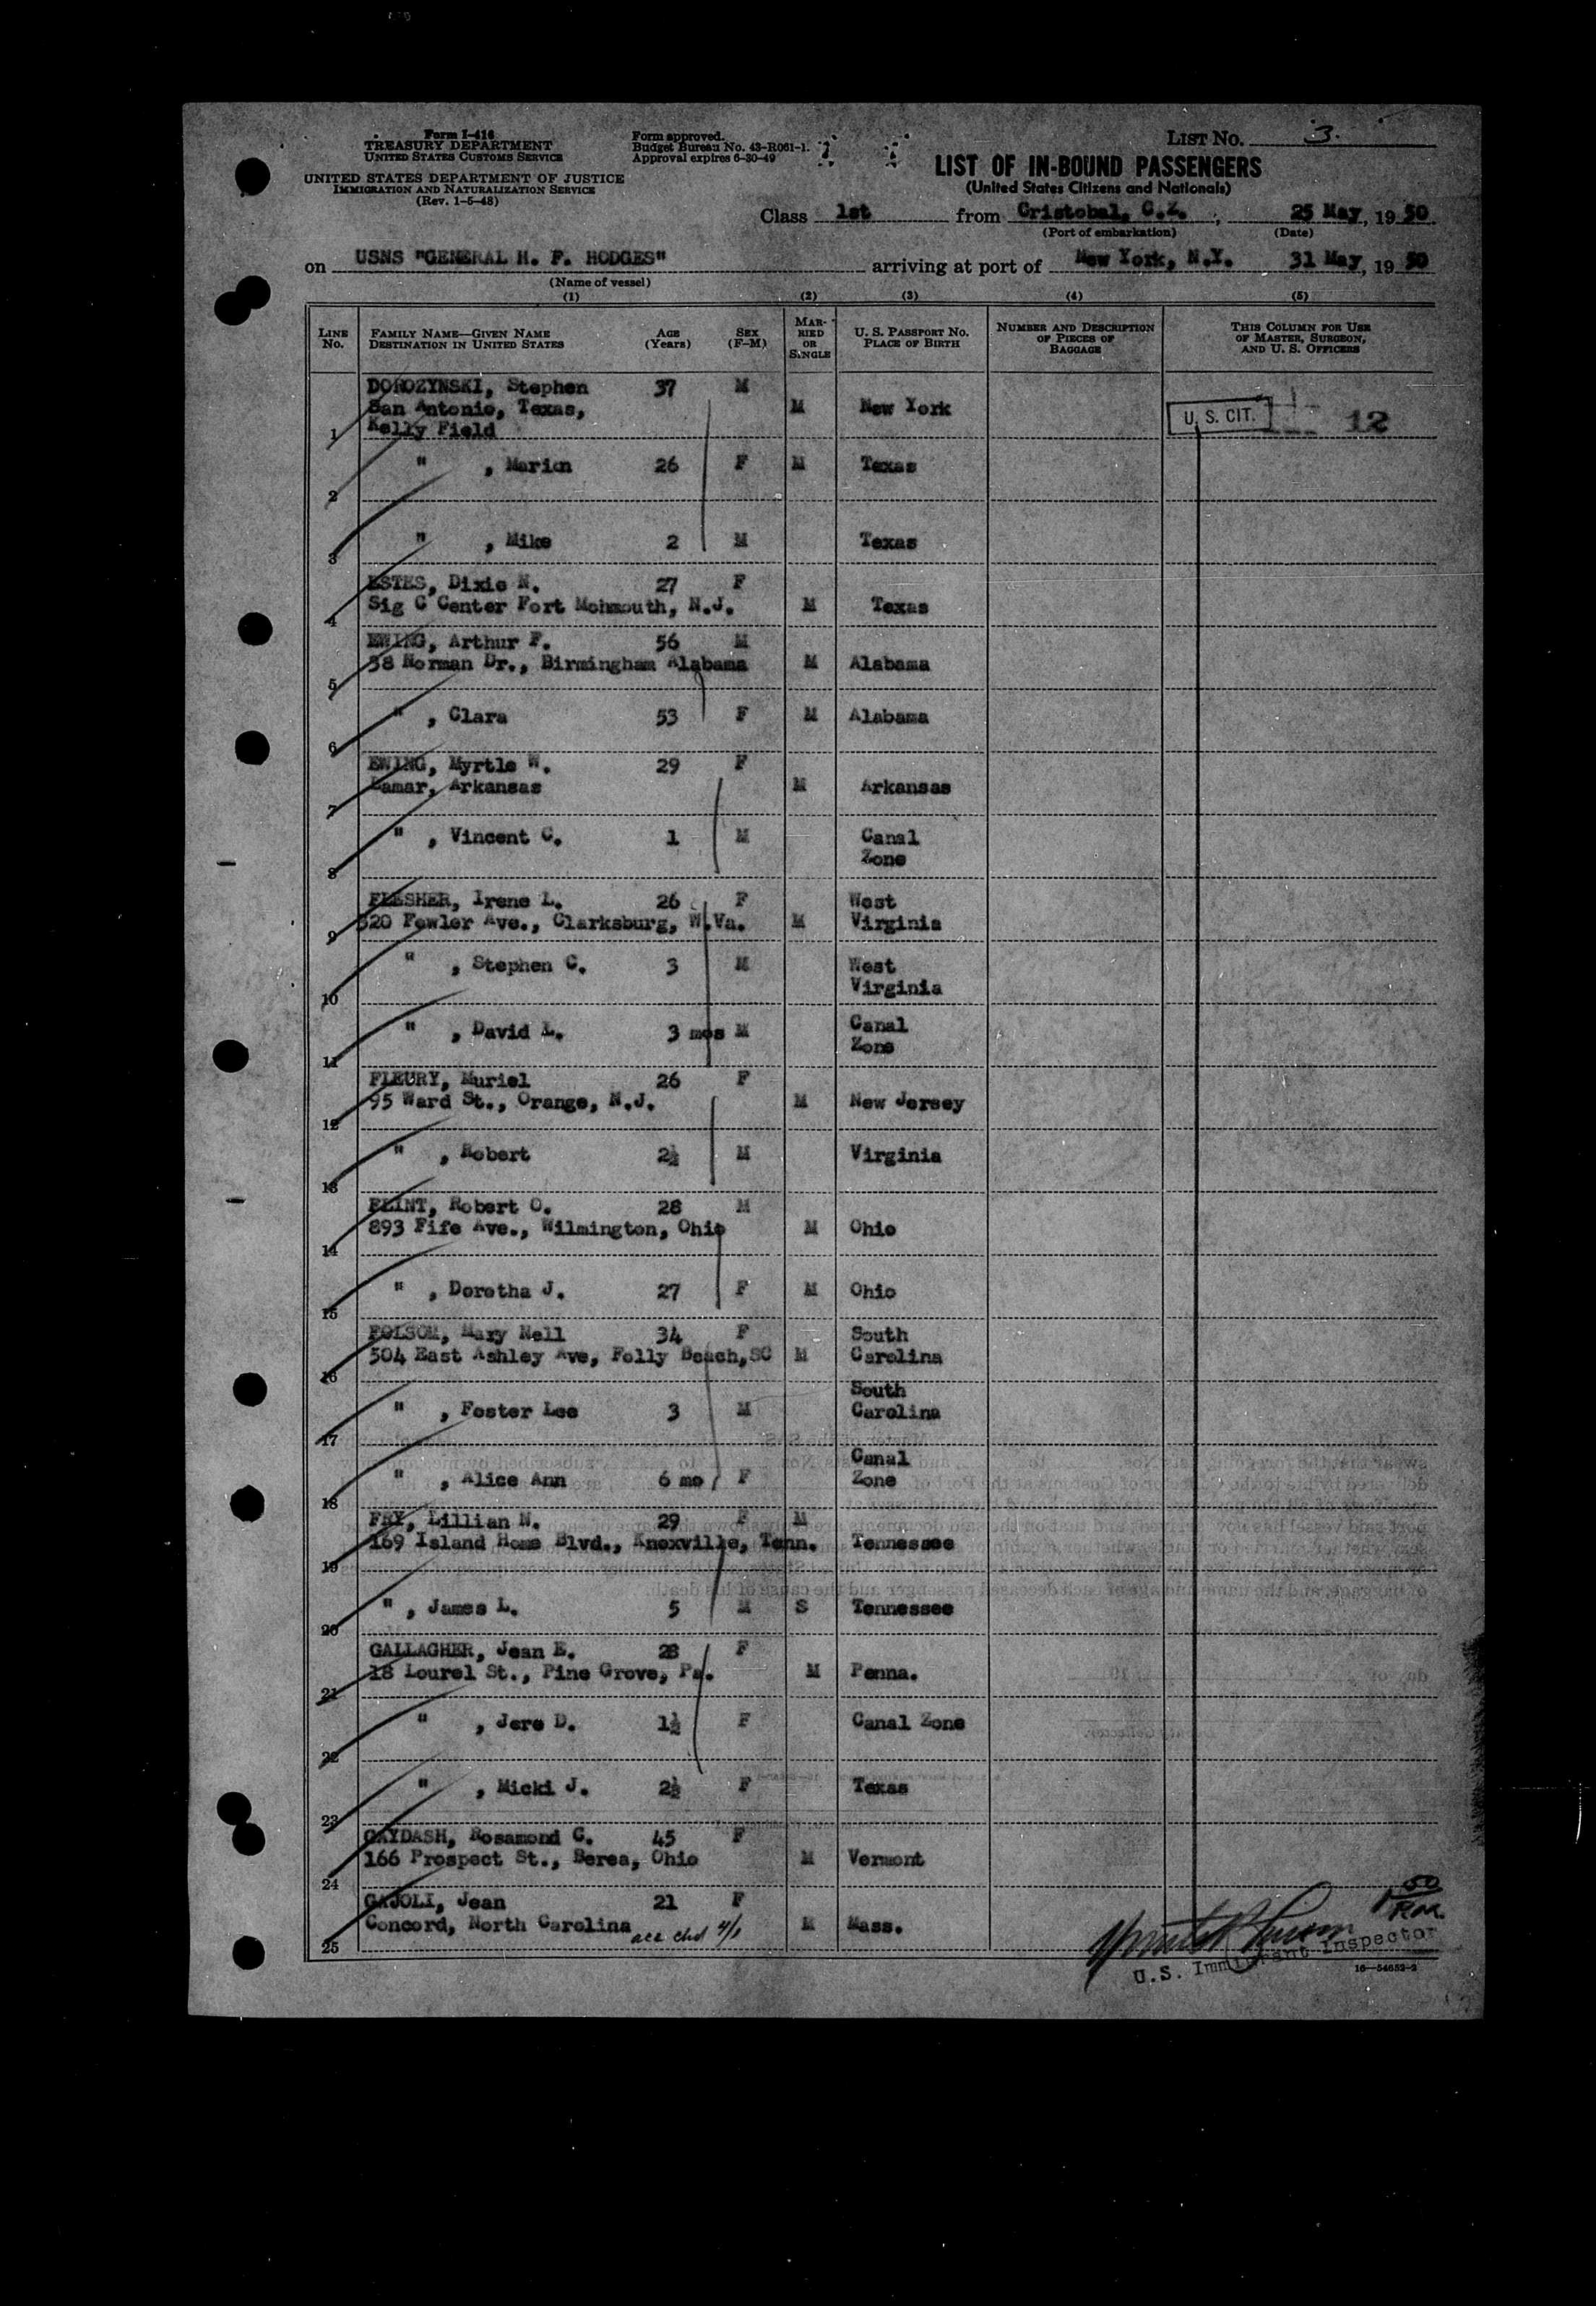 Form I-416
TREASURY DEPARTMENT
UNITED STATES CUSTOMS SERVICE
UNITED STATES DEPARTMENT OF JUSTICE
IMMIGRATION AND NATURALIZATION SERVICE
(Rev. 1-5-48)
Form approved.
Budget Bureau No. 43-R061-1.
Approval expires 6-30-49
LIST NO. 3.
LIST OF IN-BOUND PASSENGERS
(United States Citizens and Nationals)
Class 1st from Cristobal, C.Z. , 25 May, 1950
(Port of embarkation) (Date)
on USNS "GENERAL H. F. HODGES" arriving at port of New York, N.Y. 31 May, 1950
(Name of vessel)
(1) (2) (3) (4) (5)
LINE NO. FAMILY NAME—GIVEN NAME DESTINATION IN UNITED STATES AGE (Years) SEX (F-M) MARRIED OR SINGLE U. S. PASSPORT NO. PLACE OF BIRTH NUMBER AND DESCRIPTION OF PIECES OF BAGGAGE THIS COLUMN FOR USE OF MASTER, SURGEON, AND U. S. OFFICERS
DOROZYNSKI, Stephen 37 M
San Antonio, Texas, M New York U. S. CIT. 12
1 Kelly Field
" , Marion 26 F M Texas
2
" , Mike 2 M Texas
3
ESTES, Dixie N. 27 F
4 Sig C Center Fort Mohmouth, N.J. M Texas
EWING, Arthur F. 56 M
38 Norman Dr., Birmingham Alabama M Alabama
5
" , Clara 53 F M Alabama
6
EWING, Myrtle W. 29 F
Lamar, Arkansas M Arkansas
7
" , Vincent C. 1 M Canal
Zone
8
FLESHER, Irene L. 26 F West
520 Fowler Ave., Clarksburg, W.Va. M Virginia
9
" , Stephen C. 3 M West
Virginia
10
" , David L. 3 mos M Canal
Zone
11
FLEURY, Muriel 26 F
95 Ward St., Orange, N.J. M New Jersey
12
" , Robert 2½ M Virginia
13
FLINT, Robert O. 28 M
893 Fife Ave., Wilmington, Ohio M Ohio
14
" , Doretha J. 27 F M Ohio
15
FOLSOM, Mary Nell 34 F South
504 East Ashley Ave, Folly Beach, SC M Carolina
16
South
" , Foster Lee 3 M Carolina
17
Canal
" , Alice Ann 6 mo F Zone
18
FRY, Lillian N. 29 F M
169 Island Home Blvd., Knoxville, Tenn. Tennessee
19
" , James L. 5 M S Tennessee
20
GALLAGHER, Jean E. 28 F
18 Lourel St., Pine Grove, Pa. M Penna.
21
" , Jere D. 1½ F Canal Zone
22
" , Micki J. 2½ F Texas
23
GAYDASH, Rosamond C. 45 F
166 Prospect St., Berea, Ohio M Vermont
24
GAJOLI, Jean 21 F
Concord, North Carolina acc chd 4/1 M Mass.
25
U.S. Immigrant Inspector
16—54652-2